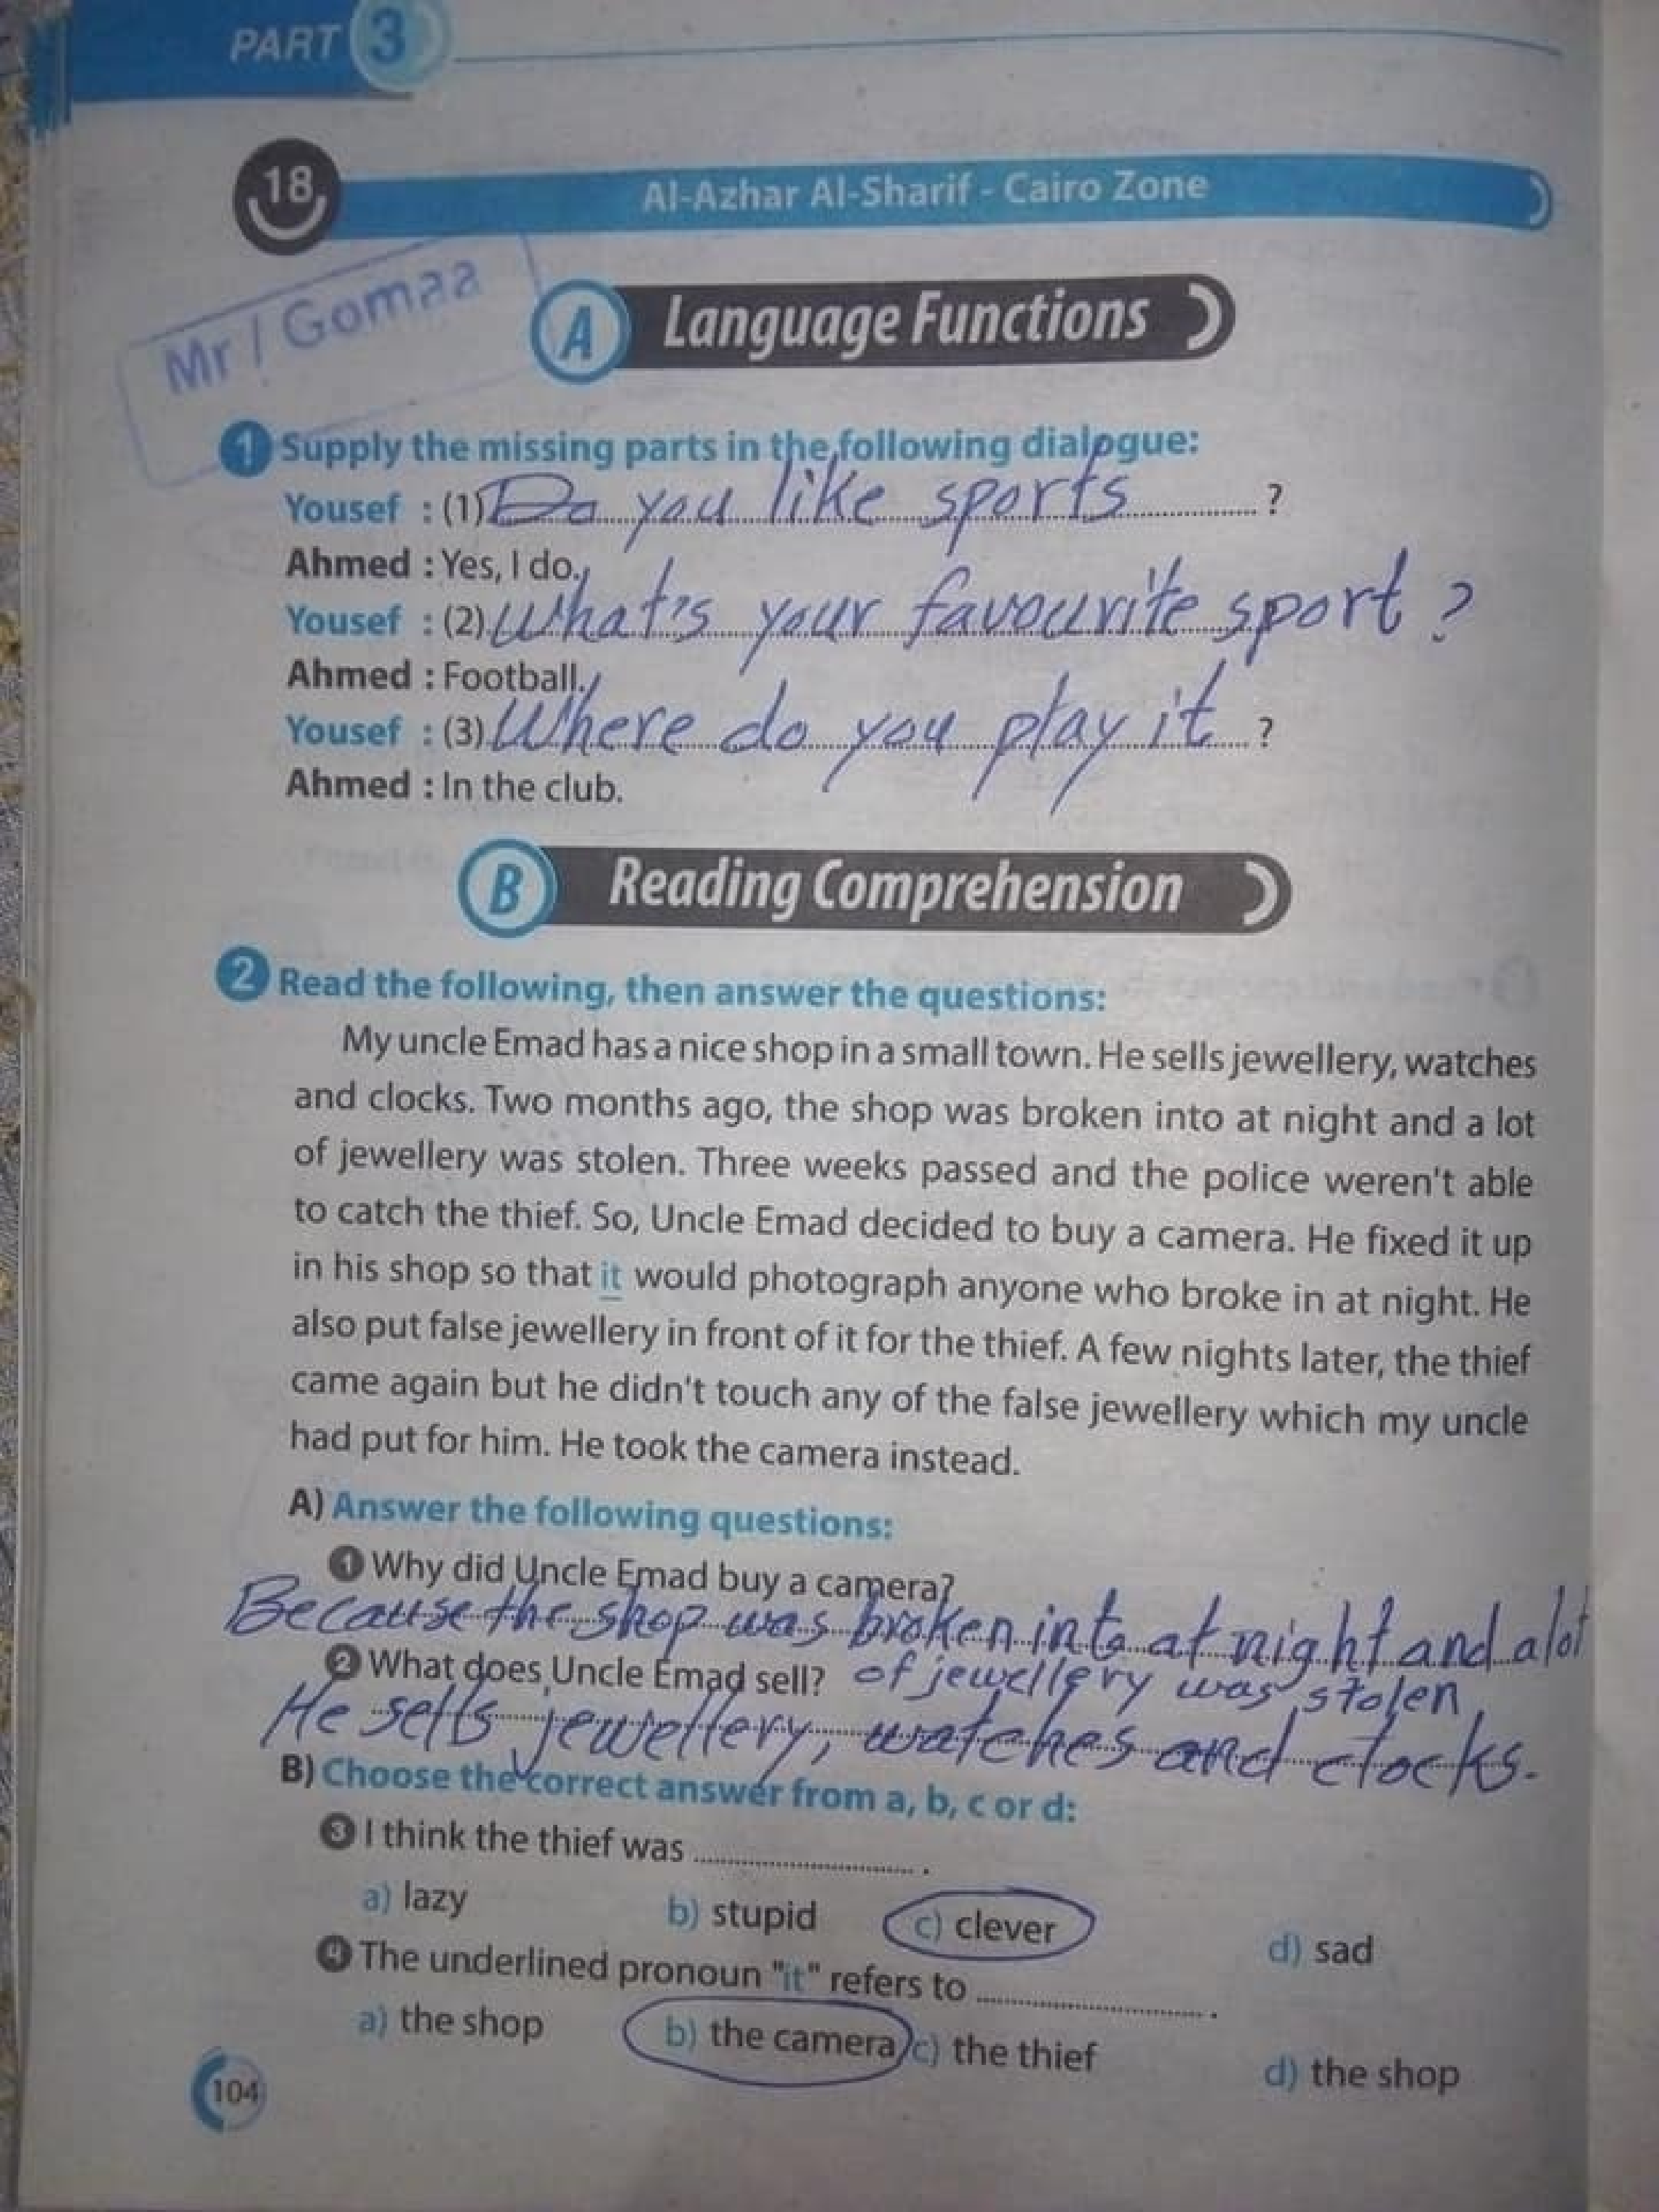 PART 3
18 Al-Azhar Al-Sharif - Cairo Zone
Mr / Gomaa
A Language Functions
1 Supply the missing parts in the following dialogue:
Yousef : (1) Do you like sports ?
Ahmed : Yes, I do.
Yousef : (2) What's your favourite sport ?
Ahmed : Football.
Yousef : (3) Where do you play it ?
Ahmed : In the club.
B Reading Comprehension
2 Read the following, then answer the questions:
My uncle Emad has a nice shop in a small town. He sells jewellery, watches
and clocks. Two months ago, the shop was broken into at night and a lot
of jewellery was stolen. Three weeks passed and the police weren't able
to catch the thief. So, Uncle Emad decided to buy a camera. He fixed it up
in his shop so that it would photograph anyone who broke in at night. He
also put false jewellery in front of it for the thief. A few nights later, the thief
came again but he didn't touch any of the false jewellery which my uncle
had put for him. He took the camera instead.
A) Answer the following questions:
1 Why did Uncle Emad buy a camera?
Because the shop was broken into at night and a lot
2 What does Uncle Emad sell? of jewellery was stolen
He sells jewellery, watches and clocks.
B) Choose the correct answer from a, b, c or d:
3 I think the thief was .................... .
a) lazy b) stupid c) clever d) sad
4 The underlined pronoun "it" refers to .................... .
a) the shop b) the camera c) the thief d) the shop
104